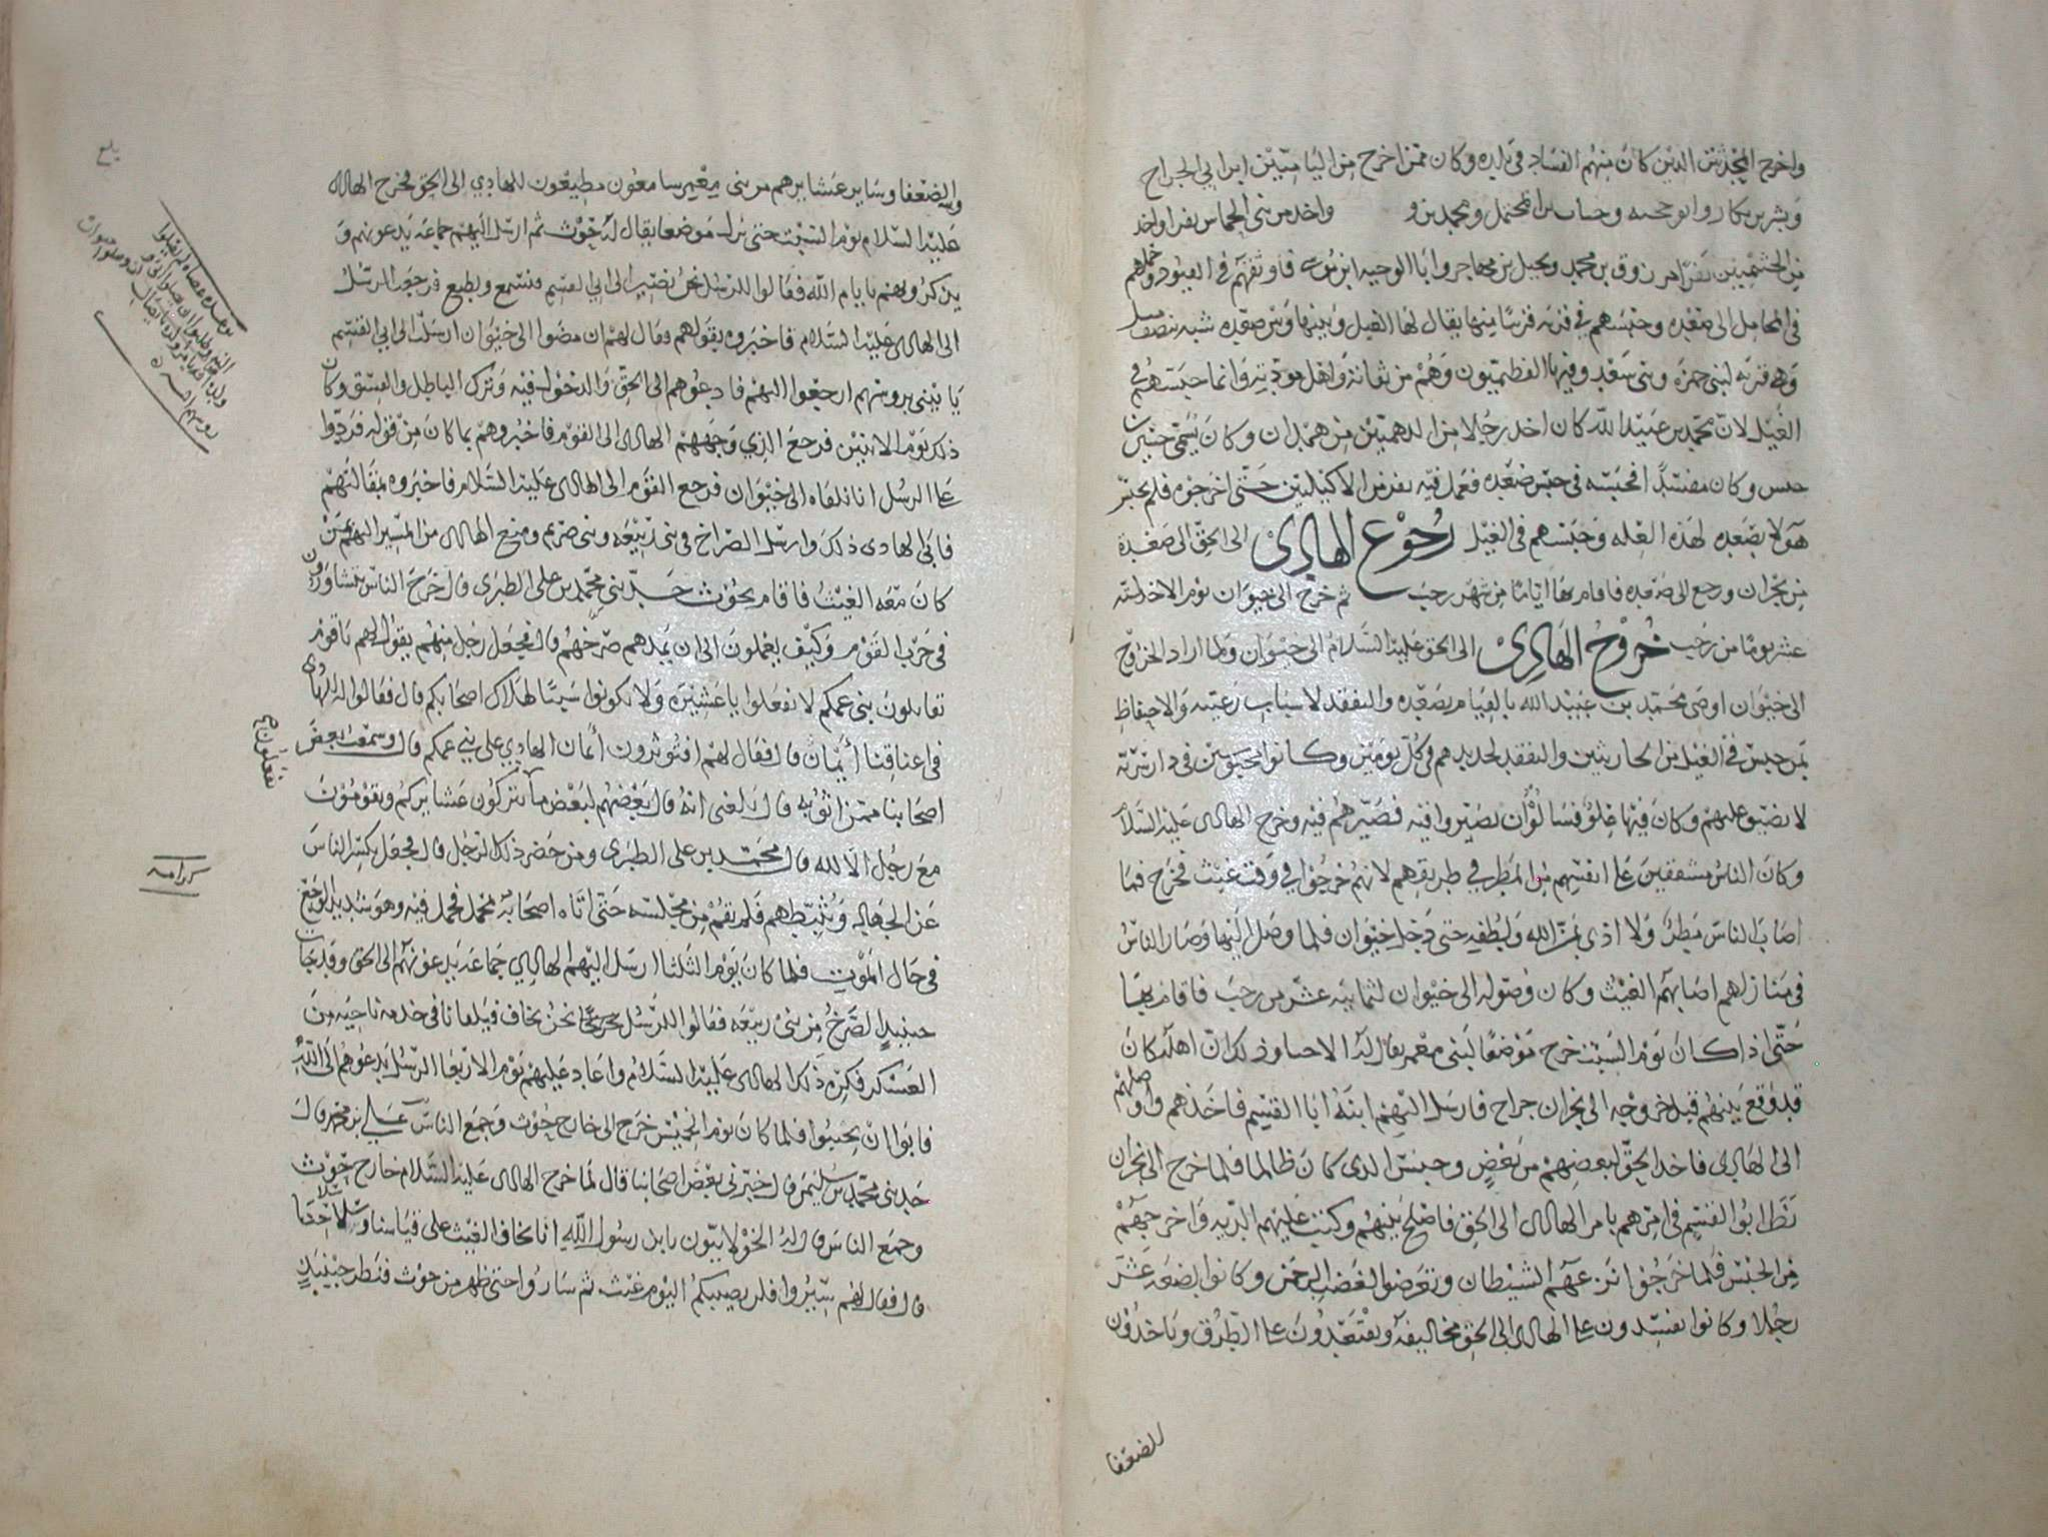 واخرج المحدثين الذين كان منهم الفساد في بلده وكان ممن اخرج من اليامتين ابرابي الجراح
وبشر بن بكار وابو وحسان ومحمد بن و واخذ من بني الحماس نفرا واخذ
من الخثميين نفرا مرزوق بن محمد ونحيل بن مهاجر وابا الوجيه ابن موسى فاوثقهم في القيود وحملهم
في المحامل الى صعده وحبسهم في قريه قريبا منها يقال لها الغيل وبينها وبين صعده شبه نصف ميل
وهي قريه لبني حمزه وبني سعد وفيها الفطيميون وهم من ثقاته واهل مودته وانما حبسهم في
الغيل لان محمد بن عبيد الله كان اخذ رجلا من الدهميين من همدان وكان يسمى حنيش
وكان مفسدا فحبسه في حبس صعده فعمل فيه نفر من الاكيليين حتى اخرجوه فلم يحبس
هولا بصعده لهذه العله وحبسهم في الغيل رجوع الهادي الى الحق الى صعدة
من نجران ورجع الى صعده فاقام بها اياما من شهر رجب ثم خرج الى خيوان يوم الاحد لسته
عشر يوما من رجب خروج الهادي الى الحق عليه السلام الى خيوان ولما اراد الخروج
الى خيوان اوصى محمد بن عبيد الله بالقيام بصعده والتفقد لاسباب رعيته والاحتفاظ
بمن حبس في الغيل من الحارثيين والتفقد لحديدهم في كل يومين وكانوا محبوسين في دار
لا تضيق عليهم وكان فيها غلو فسالوا ان يصيروا فيه فصيرهم فيه وخرج الهادي عليه السلام
وكان الناس مشفقين على انفسهم من المطر في طريقهم لانهم خرجوا في وقت غيث فخرج فما
اصاب الناس مطر ولا اذى بمن الله ولطفه حتى دخل خيوان فلما وصل اليها وصار الناس
في منازلهم اصابهم الغيث وكان وصوله الى خيوان لثمانيه عشر من رجب فاقام بها
حتى اذا كان يوم السبت خرج موضعا لبني معمر يقال له الاحساو وذلك ان اهله كان
قد وقع بينهم قبل خروجه الى نجران جراح فارسل اليهم ابنه ابا القسم فاخذهم واوصلهم
الى الهادي فاخذ الحق لبعضهم من بعض وحبس الذي كان ظالما فلما خرج الى نجران
نظر ابوا القسم في امرهم بامر الهادي الى الحق فاصلح بينهم وكتب عليهم الديه واخرجهم
من الحبس فلما خرجوا نزعهم الشيطان وتعرضوا لغضب الرحمن وكانوا بضعه عشر
رجلا وكانوا يفسدون على الهادي الى الحق مخاليفه ويقعدون على الطرق وياخذون
للضعفا
والضعفا وساير عشايرهم من بني معمر سامعون مطيعون للهادي الى الحق فخرج الهادي
عليه السلام يوم السبت حتى نزل موضعا يقال له حوث ثم ارسل اليهم جماعه يدعونهم و
يذكرونهم بايام الله فقالوا للرسل نحن نصير الى ابي القسم فنسمع ونطيع فرجعت الرسل
الى الهادي عليه السلام فاخبروه بقولهم وقال لهم ان مضوا الى خيوان ارسلت الى ابي القسم
يا بني بروسهم ارجعوا اليهم فادعوهم الى الحق والدخول فيه وترك الباطل والفسق وكان
ذلك يوم الاثنين فرجع الذي وجههم الهادي الى القوم فاخبروهم بما كان من قوله فردوا
على الرسل انا نلقاه الى خيوان فرجع القوم الى الهادي عليه السلام فاخبروه بمقالتهم
فابى الهادي ذلك وارسل الصراخ في بني ربيعه وبني صريم ومنع الهادي من المسير اليهم بمن
كان معه الغيث فاقام بحوث حدثني محمد بن علي الطبري قال خرج الناس يتشاورون
في حرب القوم وكيف يعملون الى ان يمدهم صرخهم قال فجعل رجل منهم يقول لهم يا قوم
تقاتلون بني عمكم لا تفعلوا يا عشيره ولا تكونوا سببا لهلاك اصحابكم قال فقالوا له الهادي
في اعناقنا أيمان قال فقال لهم افتوثرون أيمان الهادي على بني عمكم قال وسمعت بعض
اصحابنا ممن اثق به قال بلغني انه قال بعضهم لبعض ما تتركون عشايركم وتقومون
مع رجل الا لله قال محمد بن علي الطبري ومن حضر ذلك الرجل قال فجعل يكسر الناس
عن الجهاد ويثبطهم فلم يقم من مجلسه حتى اتاه اصحابه بمحمل فحمل فيه وهو شديد الوجع
في حال الموت فلما كان يوم الثلثا ارسل اليهم الهادي جماعه يدعونهم الى الحق وقد جات
حينيذ الصرخ من بني ربيعه فقالوا للرسل نحن نخاف فيلقانا في خدمه ناحيه من
العسكر فكره ذلك الهادي عليه السلام واعاد عليهم يوم الاربعا الرسل يدعوهم الى الله
فابوا ان يجيبوا فلما كان يوم الخميس خرج الى خارج حوث وجمع الناس علي بن محمد قال
حدثني محمد بن سليمن قال اخبرني بعض اصحابنا قال لما خرج الهادي عليه السلام خارج حوث
وجمع الناس قال له الخولانيون يا بن رسول الله انا نخاف الغيث على قياسنا وسلاحنا
قال فقال لهم سيروا فلن يصيبكم اليوم غيث ثم ساروا حتى ظهر من حوث فنظر حينيذ
بلغ
تفعلون ح
كرامه